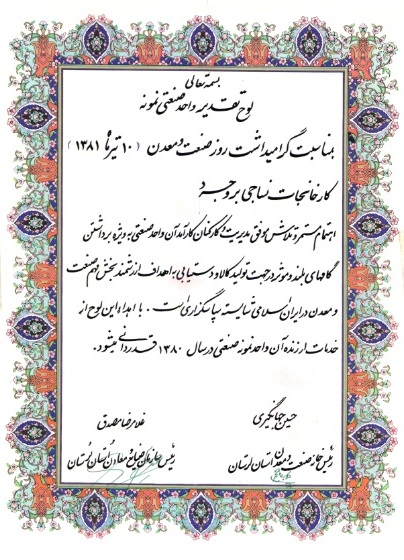 بسمه تعالی
لوح تقدیر واحد صنعتی نمونه
بمناسبت گرامیداشت روز صنعت و معدن (۱۰ تیرماه ۱۳۸۱)
کارخانجات نساجی بروجرد
اهتمام مستمر و تلاش موفق مدیریت و کارکنان کارآمد آن واحد صنعتی به ویژه برداشتن
گامهای بلند و موثر در جهت تولید کالا و دستیابی به اهداف ارزشمند بخش مهم صنعت
و معدن در ایران اسلامی شایسته سپاسگزاری است. با اهداء این لوح از
خدمات ارزنده آن واحد نمونه صنعتی در سال ۱۳۸۰ قدردانی میشود.
حسین جهانگیری
رئیس خانه صنعت و معدن استان لرستان
غلامرضا مصدق
رئیس سازمان صنایع و معادن استان لرستان